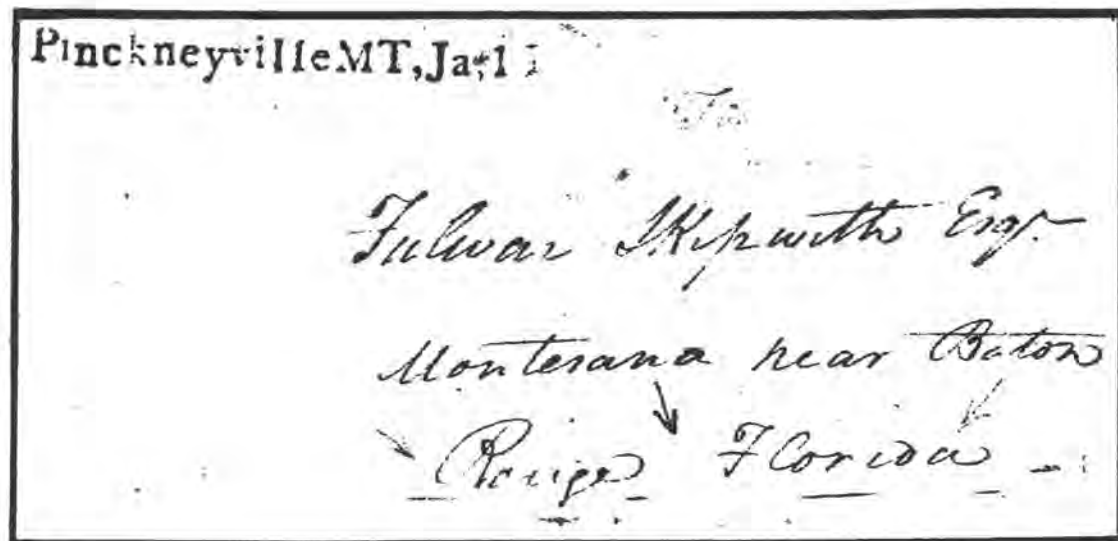 PinckneyvilleMT,
To
Fulwar Skipwith Esqr.
Montesana near Baton
Rouge Florida